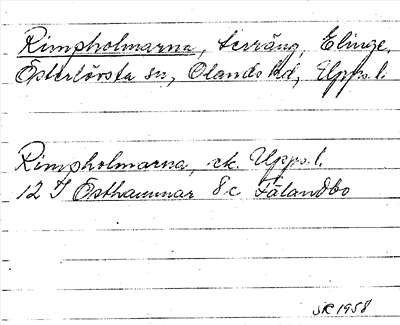 Rimpholmarna, terräng, Elinge,
Österlövsta sn, Olands hd, Upps. l.
Rimpholmarna, ek. Upps. l.
12 I Östhammar 8c Fälandbo
SR 1958